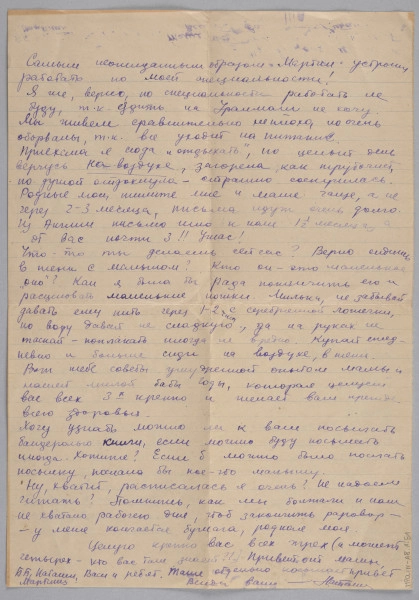 Самым неожиданным образом Мартин устроил
работать по моей специальности!
Я же, верно, по специальности работать не
буду, т-к ездить на Уралмаш не хочу.
Мы живем сравнительно неплохо, но очень
оборваны, т-к все уходит на питание.
Приехала я сюда "отдыхать", по целым дням
верчусь на воздухе, загорела, как
по дурной - страшно соскучилась.
Родные мои, пишите мне и маме чаще, а не
через 2-3 месяца, письма идут очень долго.
Из Англии письмо шло к нам 1½ месяца, а
от вас почти 3!! Ужас!
Что-то ты делаешь сейчас? Верно сидишь
в тени с малышом? Кто он - это маленькое
оно? Как я была бы рада понянчить его и
расцеловать маленькие ножки. Милька, не забывай
давать ему пить через 1-2 час. с серебряной ложечки,
но воду давай не сладкую, да на руках не
таскай - поплакать иногда не вредно. Купай ежед-
невно и больше сиди на воздухе, в тени.
Вот тебе советы умудренной опытом мамы и
нашей милой бабы Воды, которая целует
вас всех 3х крепко и желает вам прежде
всего здоровья.
Хочу узнать можно ли к вам посылать
бандеролью книги, если можно буду посылать
иногда. Хотите? Если б можно было послать
посылку, послала бы кое-что малышу.
Ну, хватит, расписалась я очень? Не надоело
читать? Помнишь, как мы болтали и нам
не хватало рабочего дня, чтоб закончить разговор -
- у меня кончается бумага, родная моя
Целую крепко вас всех трех (а может
четырех - кто вас там знает!?!) Привет от мамы,
Наташи, Васи и ребят. Тане отдельно привет
Мартину Всегда ваша